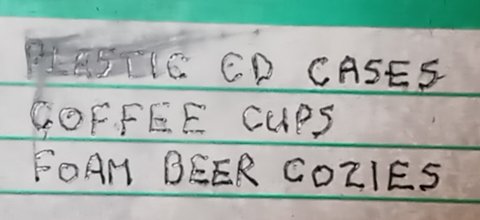 PLASTIC CD CASES
COFFEE CUPS
FOAM BEER COZIES